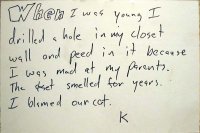 When I was young I
drilled a hole in my closet
wall and peed in it because
I was mad at my parents.
The closet smelled for years.
I blamed our cat.
K